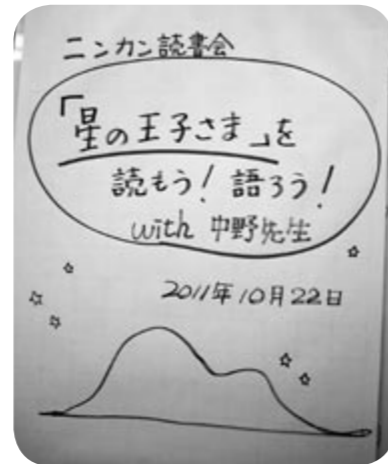 ニンカン読書会
「星の王子さま」を
読もう! 語ろう!
with 中野先生
2011年10月22日